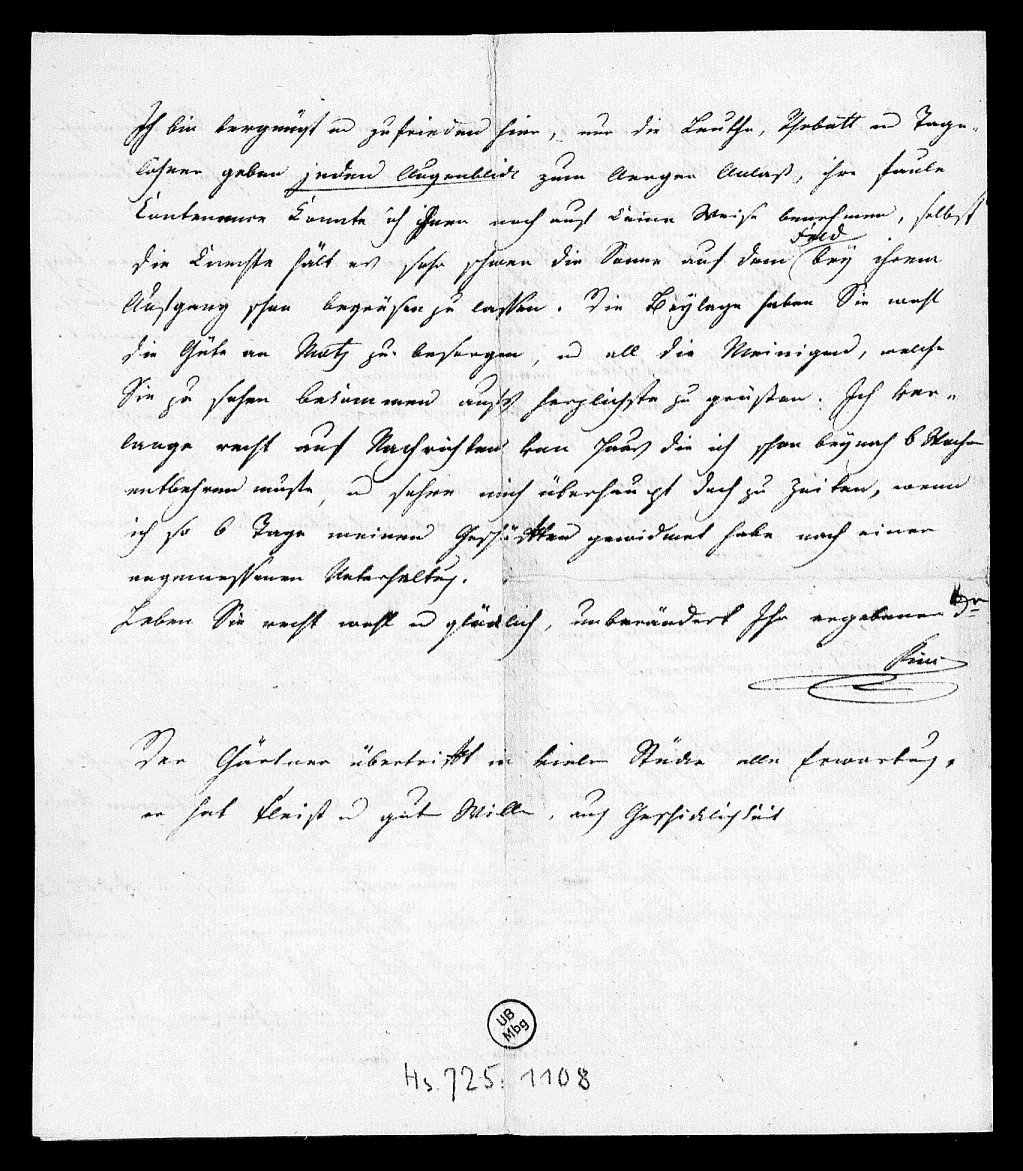 Ich bin vergnügt u zufrieden hier, nur die Leuthe, Tage-
löhner geben jeden Augenblick zum Aerger Anlaß, ihre faule
Contenance konnte ich ihnen noch auf keine Weise benehmen, selbst
die Knechte hält es sehr schwer die Sonne auf dem Feld bey ihrem
Aufgang schon begrüsen zu lassen. Die Beylage haben Sie wohl
die Güte an Motz zu besorgen, u all die Meinigen, welche
Sie zu sehen bekommen aufs herzlichste zu grüßen. Ich ver-
lange recht auf Nachrichten von Haus die ich schon beynah 6 Wochen
entbehren muste u sehne mich überhaupt doch zu Zeiten, wenn
ich so 6 Tage meinen Geschäften gewidmet habe nach einer
angemessenen Unterhaltung.
Leben Sie recht wohl u glücklich, unverändert Ihr ergebener

Der Gärtner übertrifft in vielen Stücken alle Erwartung,
er hat Fleiß u guten Willen, auch Geschicklichkeit
UB
Mbg
Hs. 725:1108